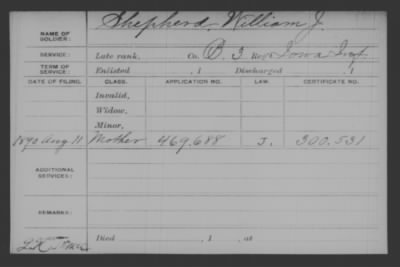 NAME OF SOLDIER: Shepherd, William J.
SERVICE: Late rank, Co. B, 3 Reg't Iowa Inf.
TERM OF SERVICE: Enlisted , 1 Discharged , 1
DATE OF FILING. CLASS. APPLICATION NO. LAW. CERTIFICATE NO.
Invalid,
Widow,
Minor,
1890 Aug 11 Mother 469.688 J. 300.531
ADDITIONAL SERVICES:
REMARKS:
Died , 1 , at